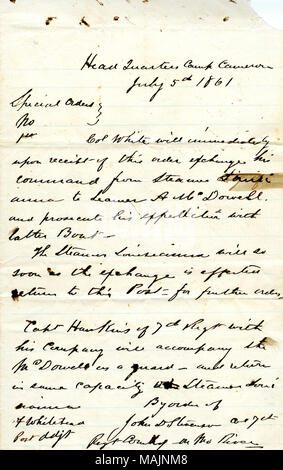 Head Quarters Camp Cameron
July 5th 1861
Special Orders }
No }
Col White will immediately
upon receipt of this order exchange his
command from Steamer Louisi
anna to Steamer A. McDowell.
and prosecute his expedition with
latter Boat -
The Steamer Louisianna will as
soon as the exchange is effected
return to this Post - for further orders
Capt Hawkins of 7th Regt with
his Company will accompany the
McDowell as a guard - and return
in same capacity Steamer Loui
sianna By order of
John D Stevenson
Post Adjt on Mo River
alamy
Image ID: MAJNM8
www.alamy.com